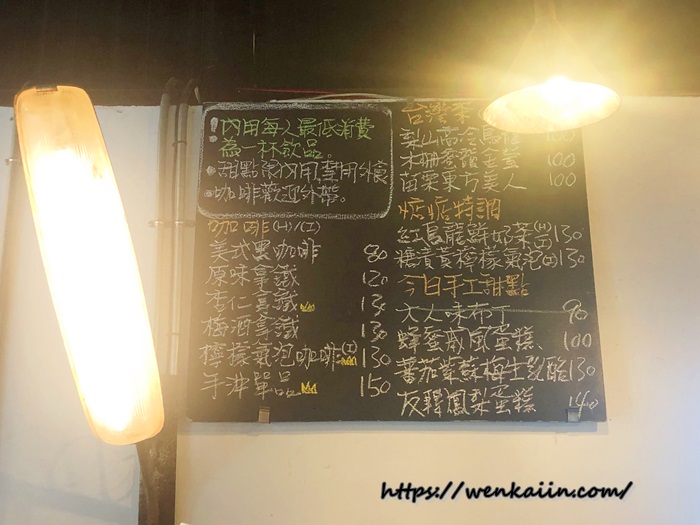 ！內用每人最低消費
為一杯飲品。
•甜點限內用,禁用外食
•咖啡歡迎外帶。
咖啡(H)/(I)
美式黑咖啡 80
原味拿鐵 120
杏仁拿鐵 130
梅酒拿鐵 130
檸檬氣泡咖啡(I) 130
手沖單品 150
台灣茶
梨山高冷烏龍 100
木柵季發金萱 100
苗栗東方美人 100
特調
紅烏龍鮮奶茶(H)(I) 130
糖漬黃檸檬氣泡(I) 130
今日手工甜點
大人味布丁 90
蜂蜜戚風蛋糕 100
蕃茄紫蘇梅生乳酪 130
友釋鳳梨蛋糕 140
https://wenkaiin.com/